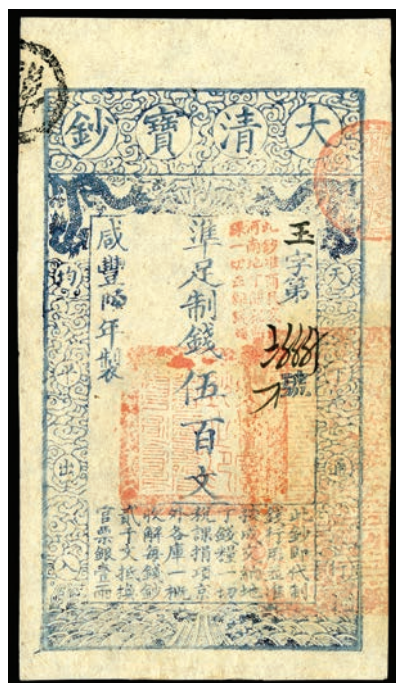 大清寶鈔
天下通行
玉字第 號
準足制錢伍百文
咸豐 年製
均平出入
此鈔即代制
錢行用並准
按成交納地
丁錢糧一切
稅課捐項京
外各庫一概
收解每錢鈔
貳千文抵換
官票銀壹兩